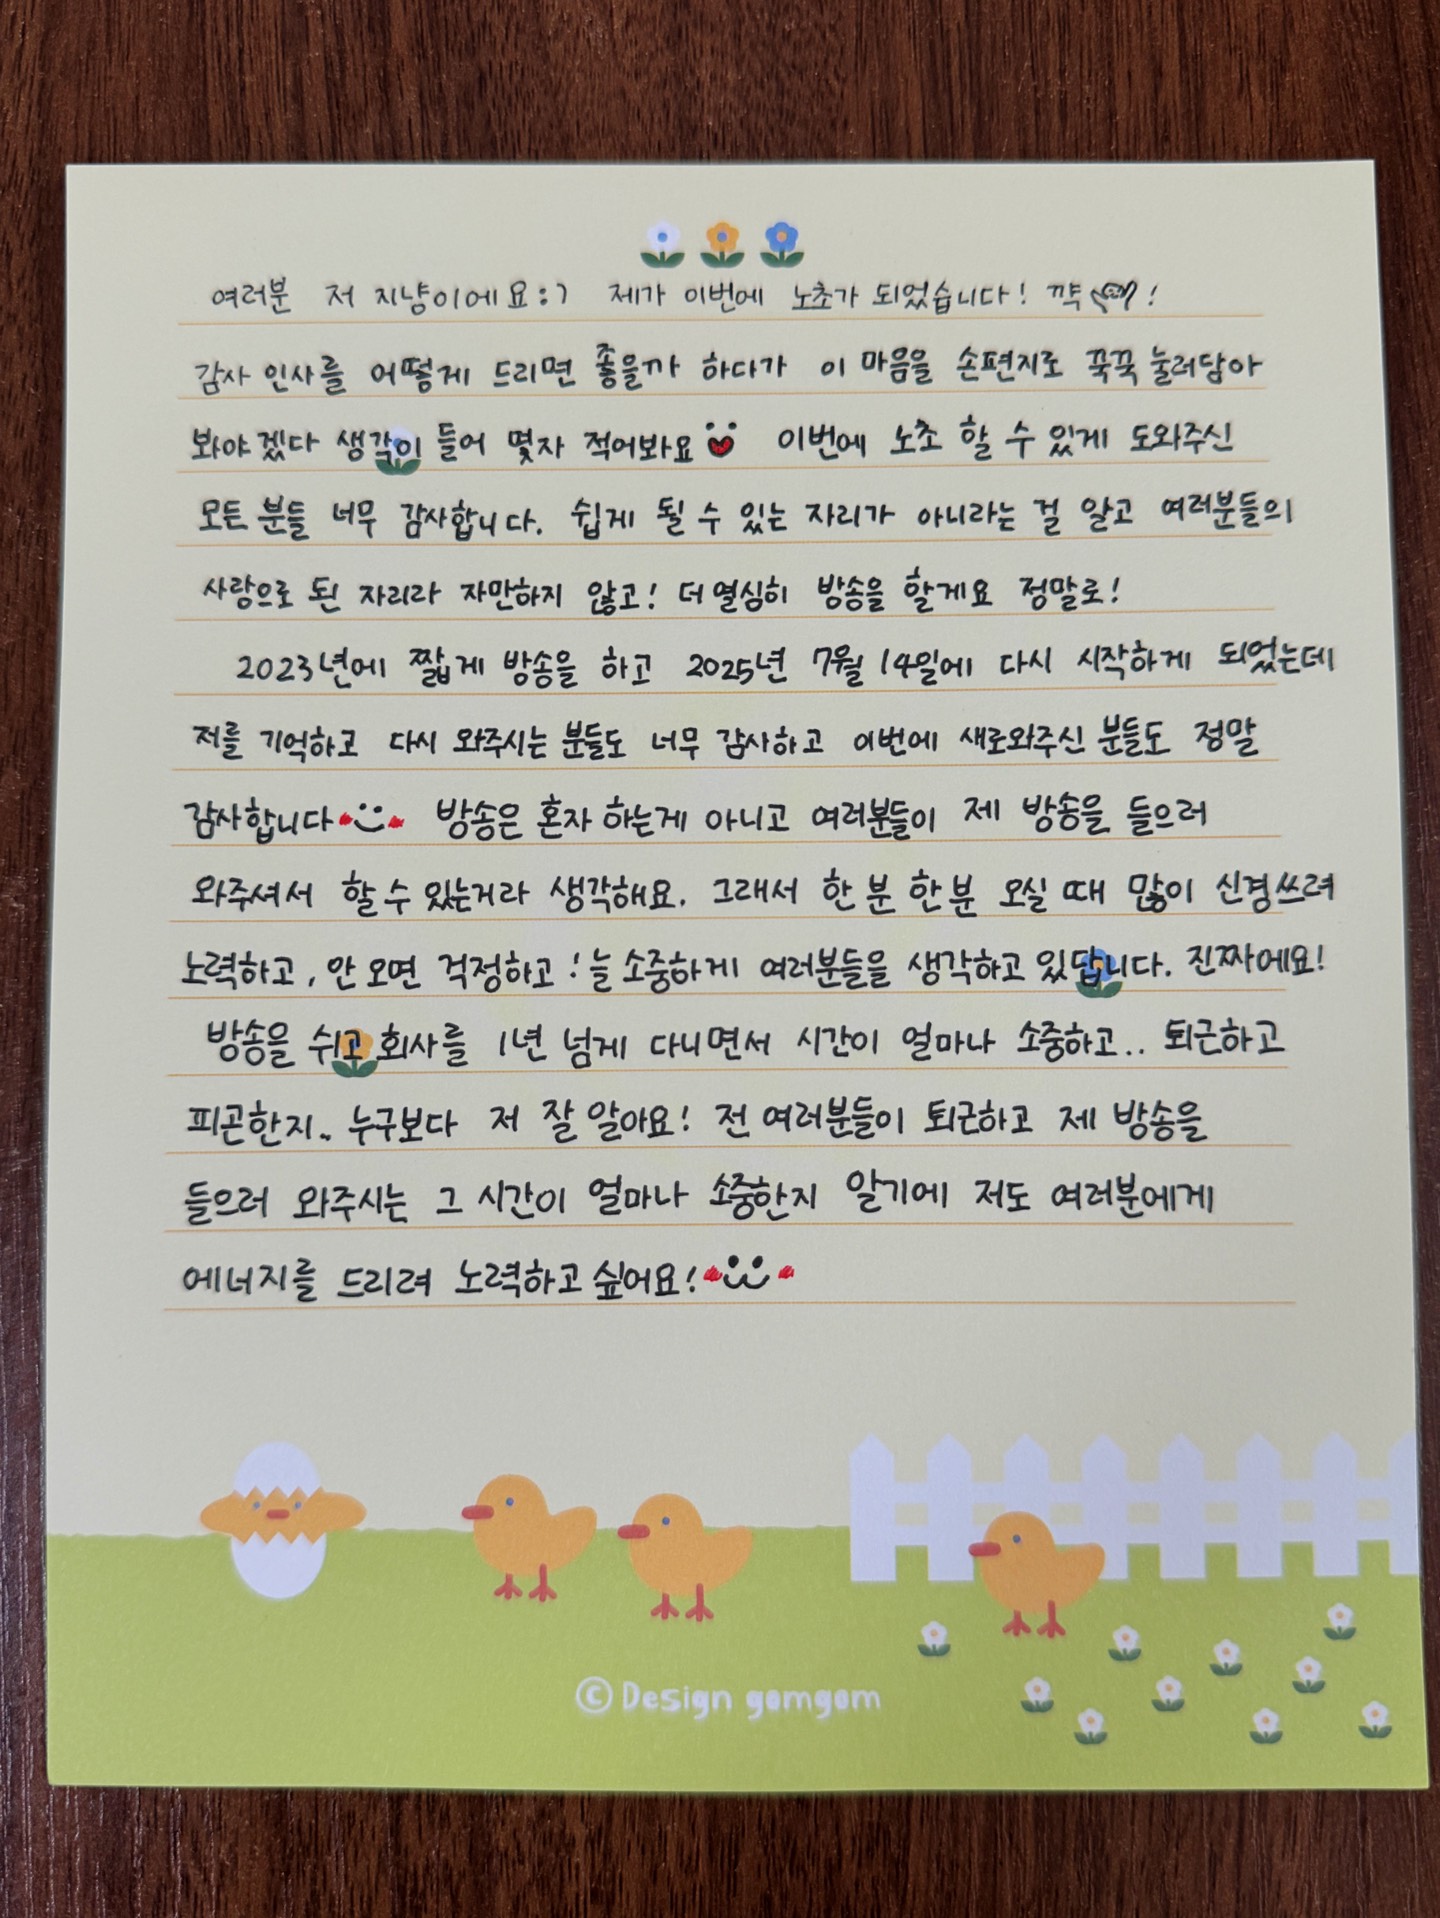 여러분 저 지냥이에요:) 제가 이번에 노초가 되었습니다! 꺅!
감사 인사를 어떻게 드리면 좋을까 하다가 이 마음을 손편지로 꾹꾹 눌러담아
봐야겠다 생각이 들어 몇자 적어봐요 이번에 노초 할 수 있게 도와주신
모든 분들 너무 감사합니다. 쉽게 될 수 있는 자리가 아니라는 걸 알고 여러분들의
사랑으로 된 자리라 자만하지 않고! 더 열심히 방송을 할게요 정말로!
2023년에 짧게 방송을 하고 2025년 7월 14일에 다시 시작하게 되었는데
저를 기억하고 다시 와주시는 분들도 너무 감사하고 이번에 새로와주신 분들도 정말
감사합니다 방송은 혼자 하는게 아니고 여러분들이 제 방송을 들으러
와주셔서 할 수 있는거라 생각해요. 그래서 한 분 한 분 오실 때 많이 신경쓰려
노력하고, 안 오면 걱정하고! 늘 소중하게 여러분들을 생각하고 있답니다. 진짜에요!
방송을 쉬고 회사를 1년 넘게 다니면서 시간이 얼마나 소중하고.. 퇴근하고
피곤한지.. 누구보다 저 잘 알아요! 전 여러분들이 퇴근하고 제 방송을
들으러 와주시는 그 시간이 얼마나 소중한지 알기에 저도 여러분에게
에너지를 드리려 노력하고 싶어요!
© Design gomgom